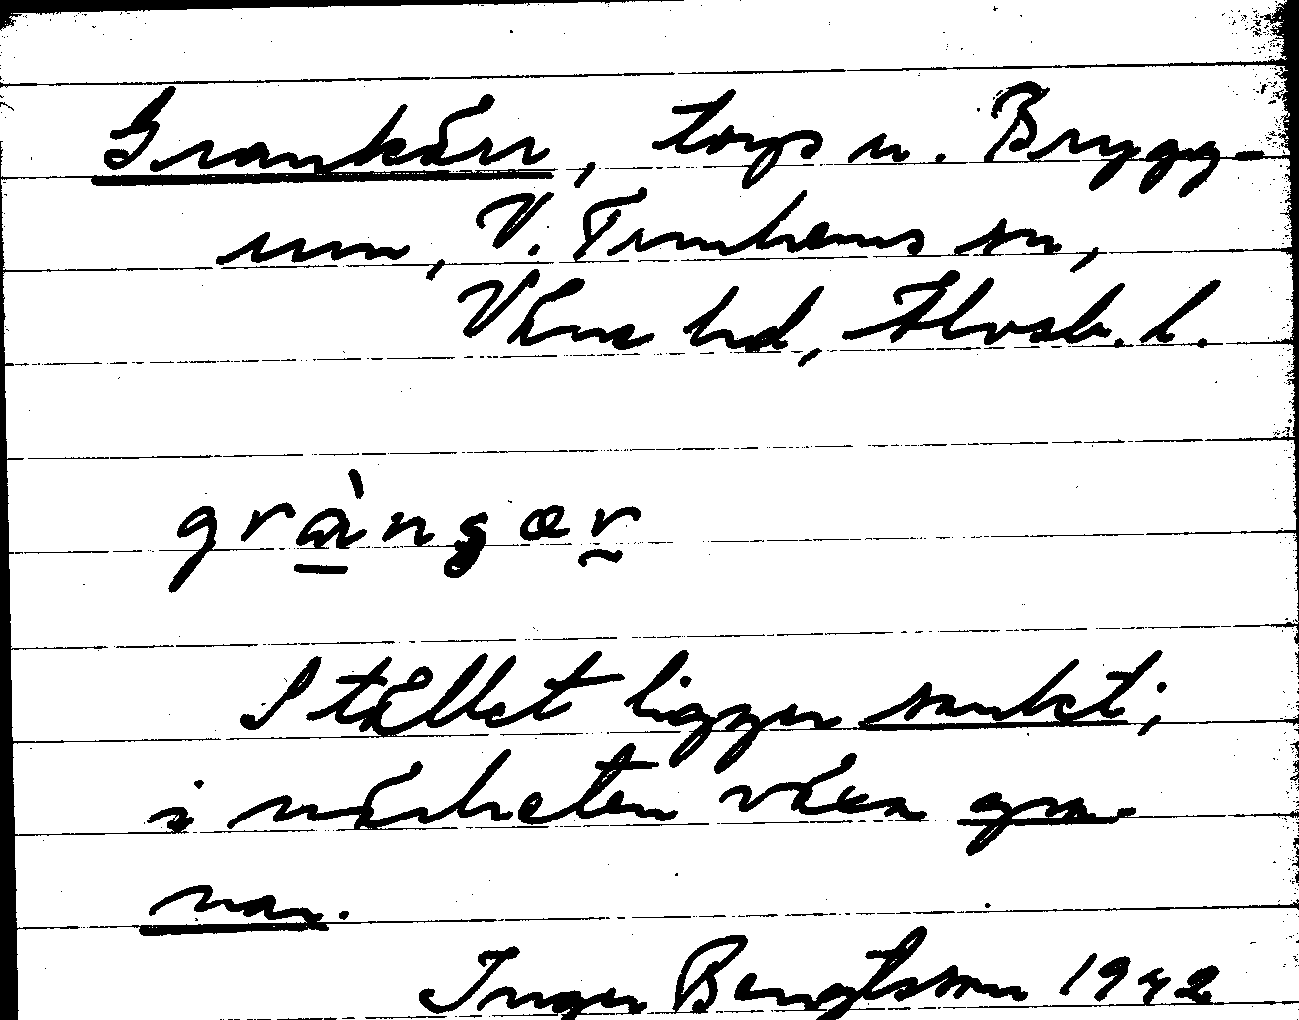 Grankärr, torp u. Brygg-
um, V. Tunhems sn,
Väne hd, Älvsb. l.
grànşær
Stället ligger sankt;
i närheten växa gra-
nar.
Inger Bengtsson 1942